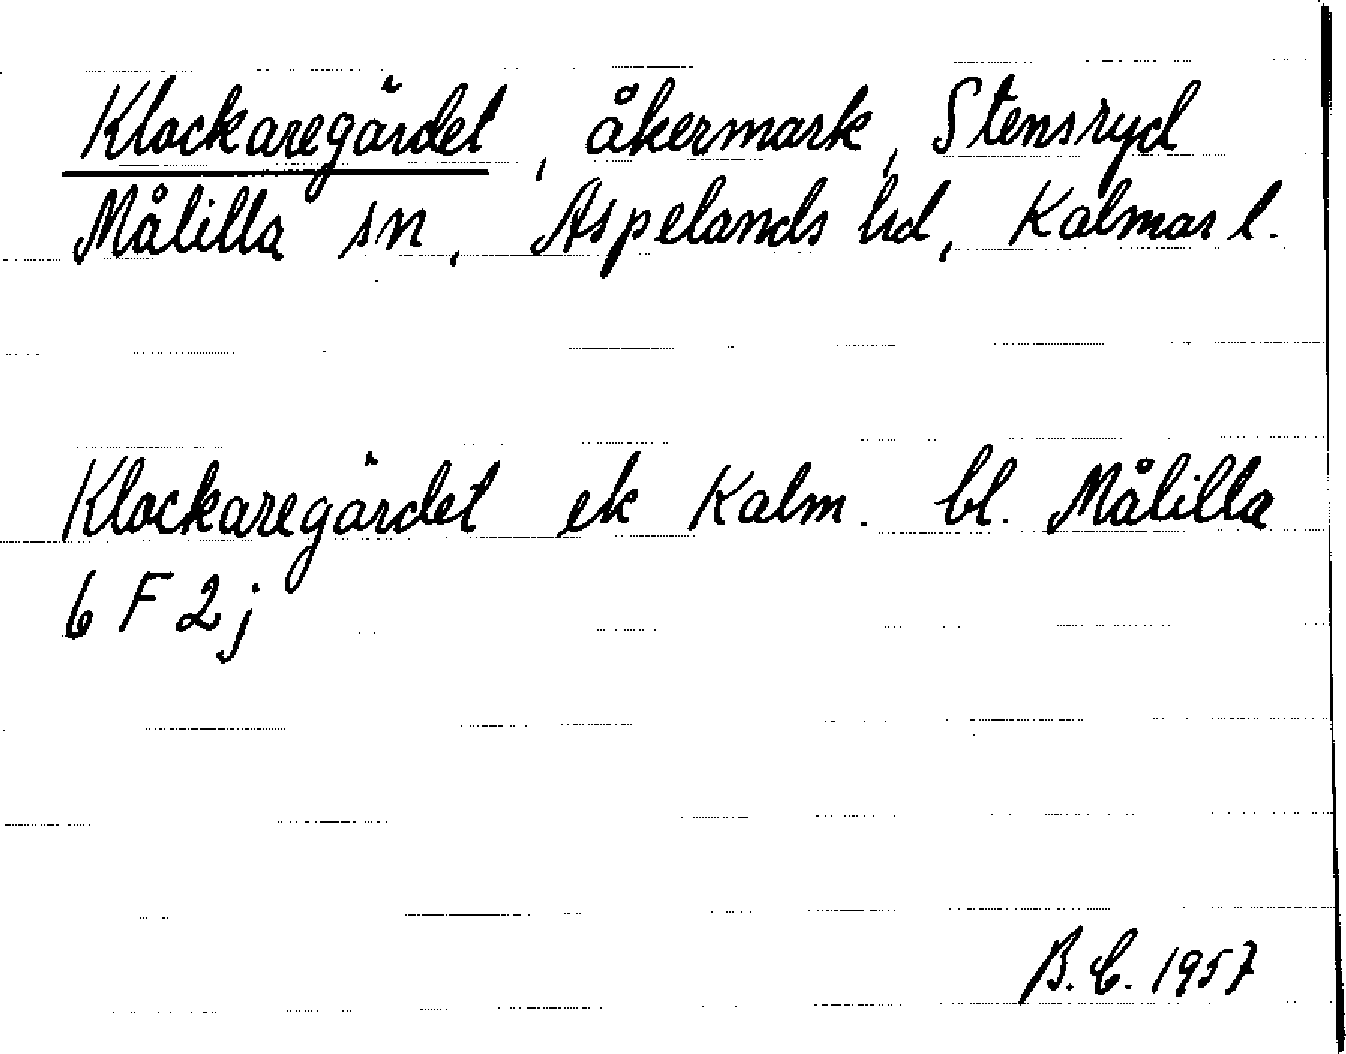 Klockaregärdet, åkermark, Stensryd
Målilla sn, Aspelands hd, Kalmar l.
Klockaregärdet ek Kalm. bl. Målilla
6 F 2 j
B. C. 1957